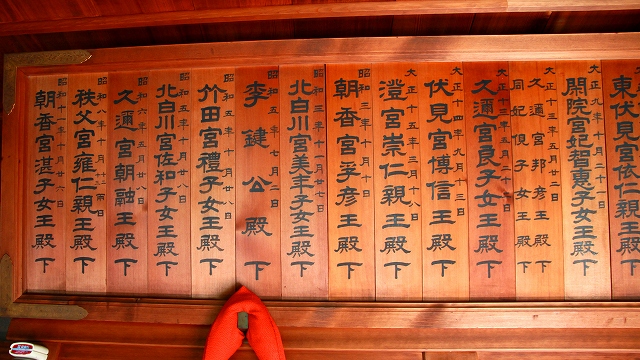 大正九年十月二日
東伏見宮依仁親王殿
大正九年十月廿一日
閑院宮妃智恵子女王殿下
久邇宮邦彦王殿下
同妃俔子女王殿下
久邇宮良子女王殿下
大正十四年九月十三日
伏見宮博信王殿下
大正十五年三月十八日
澄宮崇仁親王殿下
昭和三年十月十日
朝香宮孚彦王殿下
昭和三年十一月廿七日
北白川宮美年子女王殿下
昭和五年七月二日
李鍵公殿下
昭和五年十月廿八日
竹田宮禮子女王殿下
昭和五年十月廿八日
北白川宮佐和子女王殿下
昭和六年五月廿八日
久邇宮朝融王殿下
昭和八年十月十二両日
秩父宮雍仁親王殿下
昭和十年十月廿六日
朝香宮湛子女王殿下